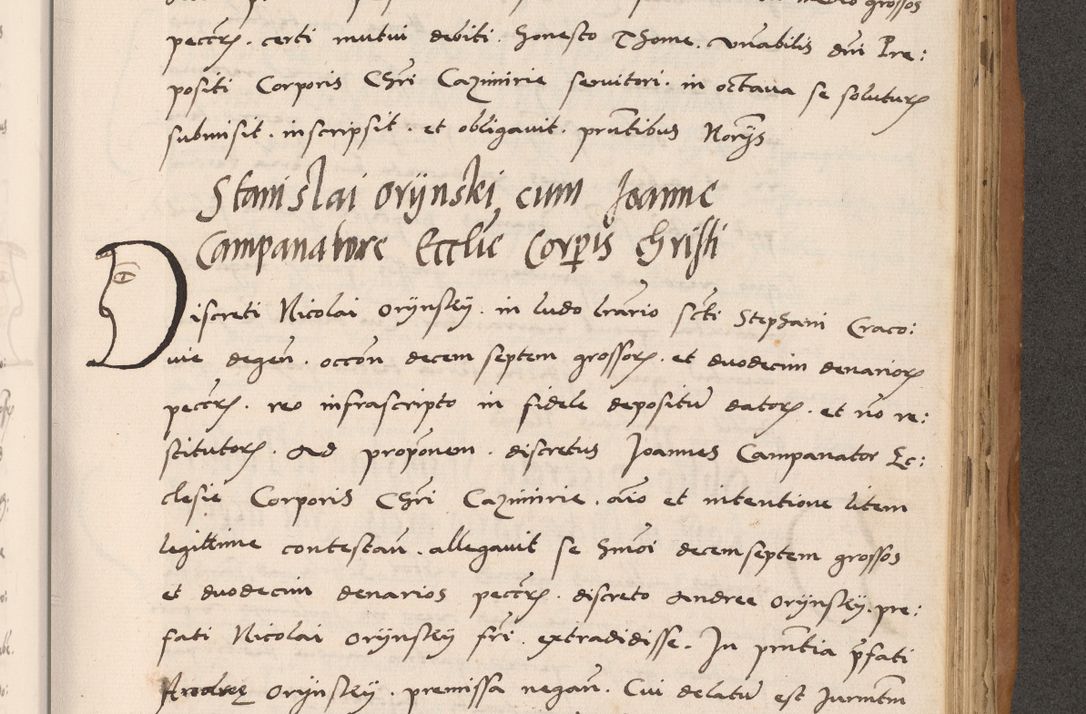 grossos
pecctis . certi mutui debiti . Honesto Thome . vnabilis dni Pre:
positi Corporis Chri Cazimirie seruitori . in octaua se soluturz
submisit . inscripsit . et obligauit . prntibus Norijs
Stanislai orijnski cum Joanne
Campanatore Ecclie Corpis christi
Discreti Nicolai Orijnsky . in ludo lrario scti Stephani Craco:
uie degen . occon decem septem grossorz . et duodecim denariorz
pecctz . reo infrascripto in fidele depositu datorz . et no re:
stitutorz . Ad proponem . discretus Joannes Campanator Ec:
clesie Corporis Chri Cazimirie . aio et intentione litem
legittime contestan . allegauit se hmoi decemseptem grossos
et duodecim denarios pecctz . discreto Andree Orijnsky . pre:
fati Nicolai Orijnsky fri . extradidisse . In prntia pfati
Andreę Orijnsky . premissa negan . Cui delatu est Jurmtm